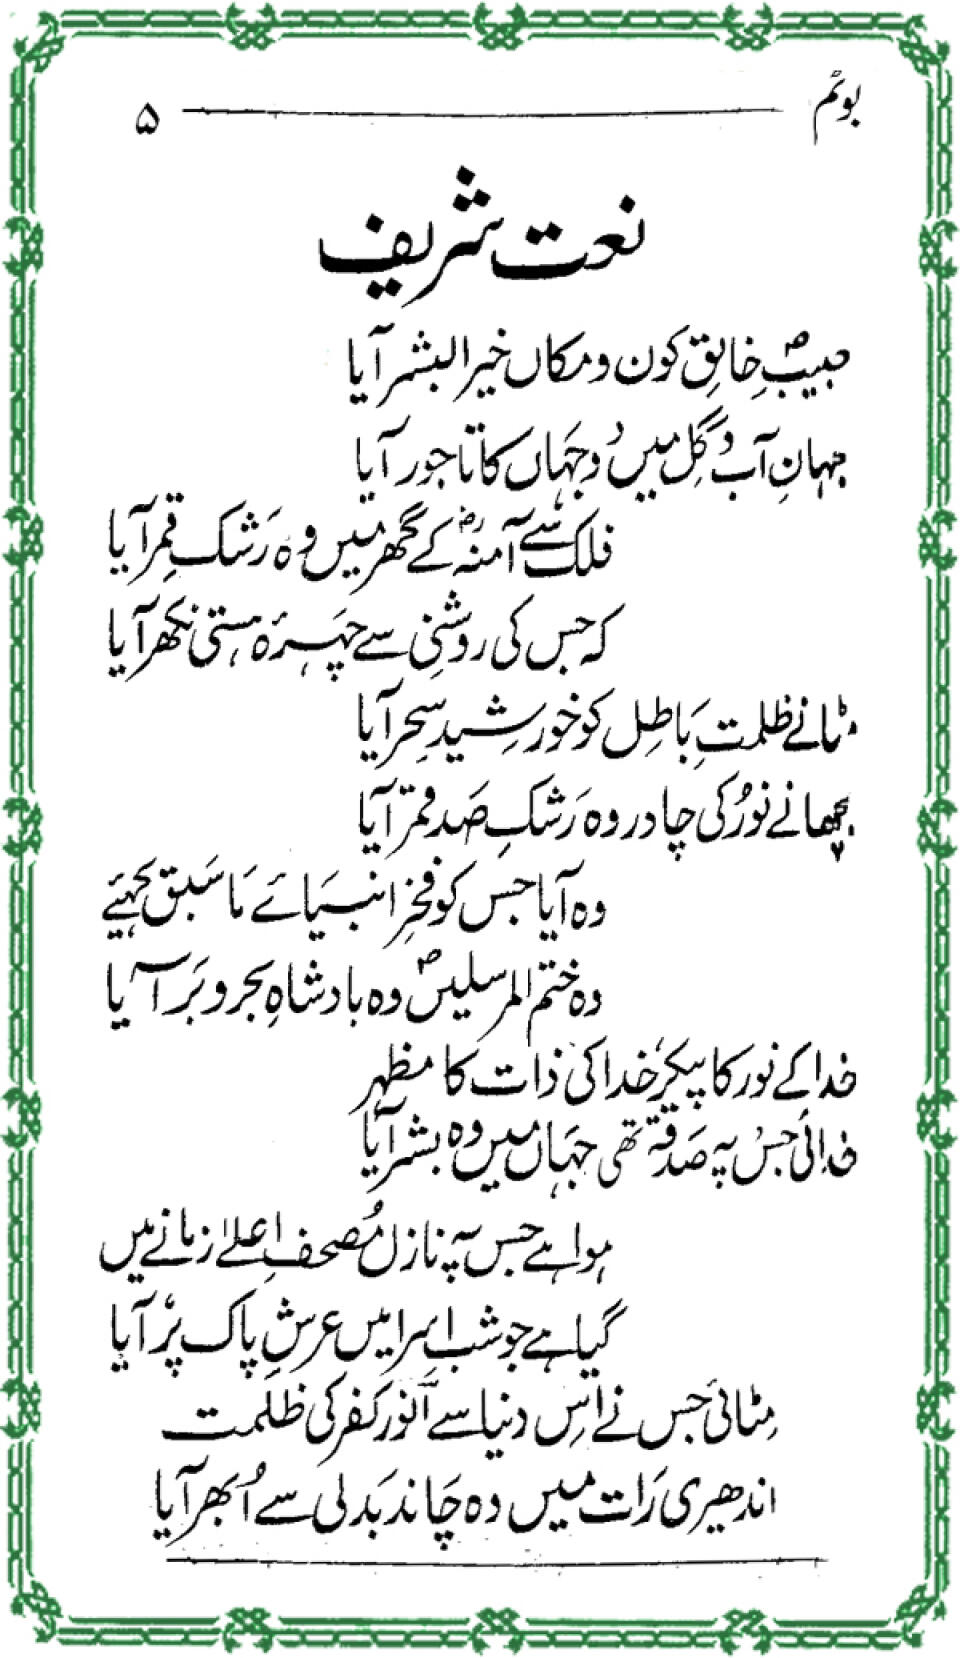 بوئم ۵
نعت شریف
حبیبؐ خالقِ کون و مکاں خیر البشر آیا
جہانِ آب و گِل میں دو جہاں کا تاجور آیا
فلک سے آمنہؓ کے گھر میں وہ رَشک قمر آیا
کہ جس کی روشنی سے چہرۂ ہستی نکھر آیا
مٹانے ظلمتِ بَاطِل کو خورشیدِ سحر آیا
بچھانے نُور کی چادر وہ رَشکِ صَد قمر آیا
وہ آیا جس کو فخرِ انبیائے مَا سَبق کہیئے
وہ ختم المرسلیںؐ وہ بادشاہِ بحر و بَر آیا
خدا کے نور کا پیکر خدا کی ذات کا مظہر
خدائی جس پہ صَدقہ تھی جہاں میں وہ بشر آیا
ہوا ہے جس پہ نازل مُصحفِ اعلیٰ زمانے میں
گیا ہے جو شبِ اسرا میں عرشِ پاک پر آیا
مِٹائی جس نے اس دنیا سے آنور کفر کی ظلمت
اندھیری رَات میں وہ چَاند بَدلی سے اُبھر آیا